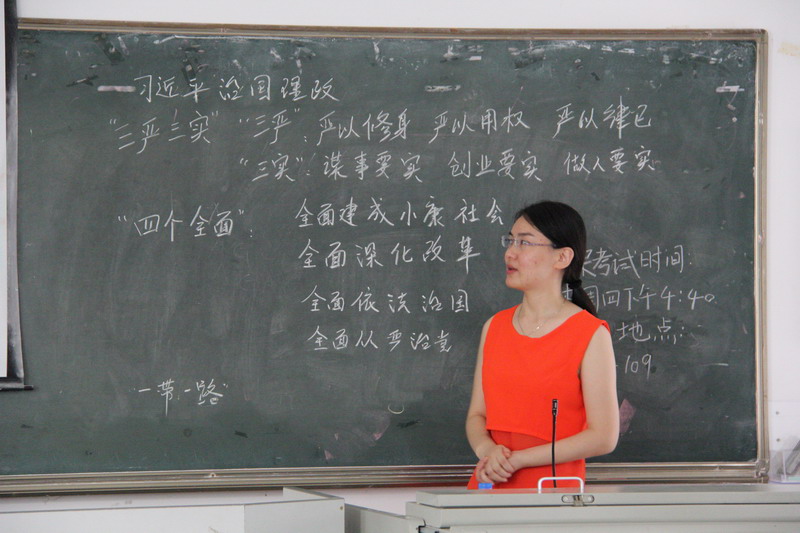 习近平治国理政
"三严三实" "三严": 严以修身 严以用权 严以律己
"三实": 谋事要实 创业要实 做人要实
"四个全面": 全面建成小康社会
全面深化改革
全面依法治国
全面从严治党
"一带一路"
考试时间:
周四下午4:40
地点:
109